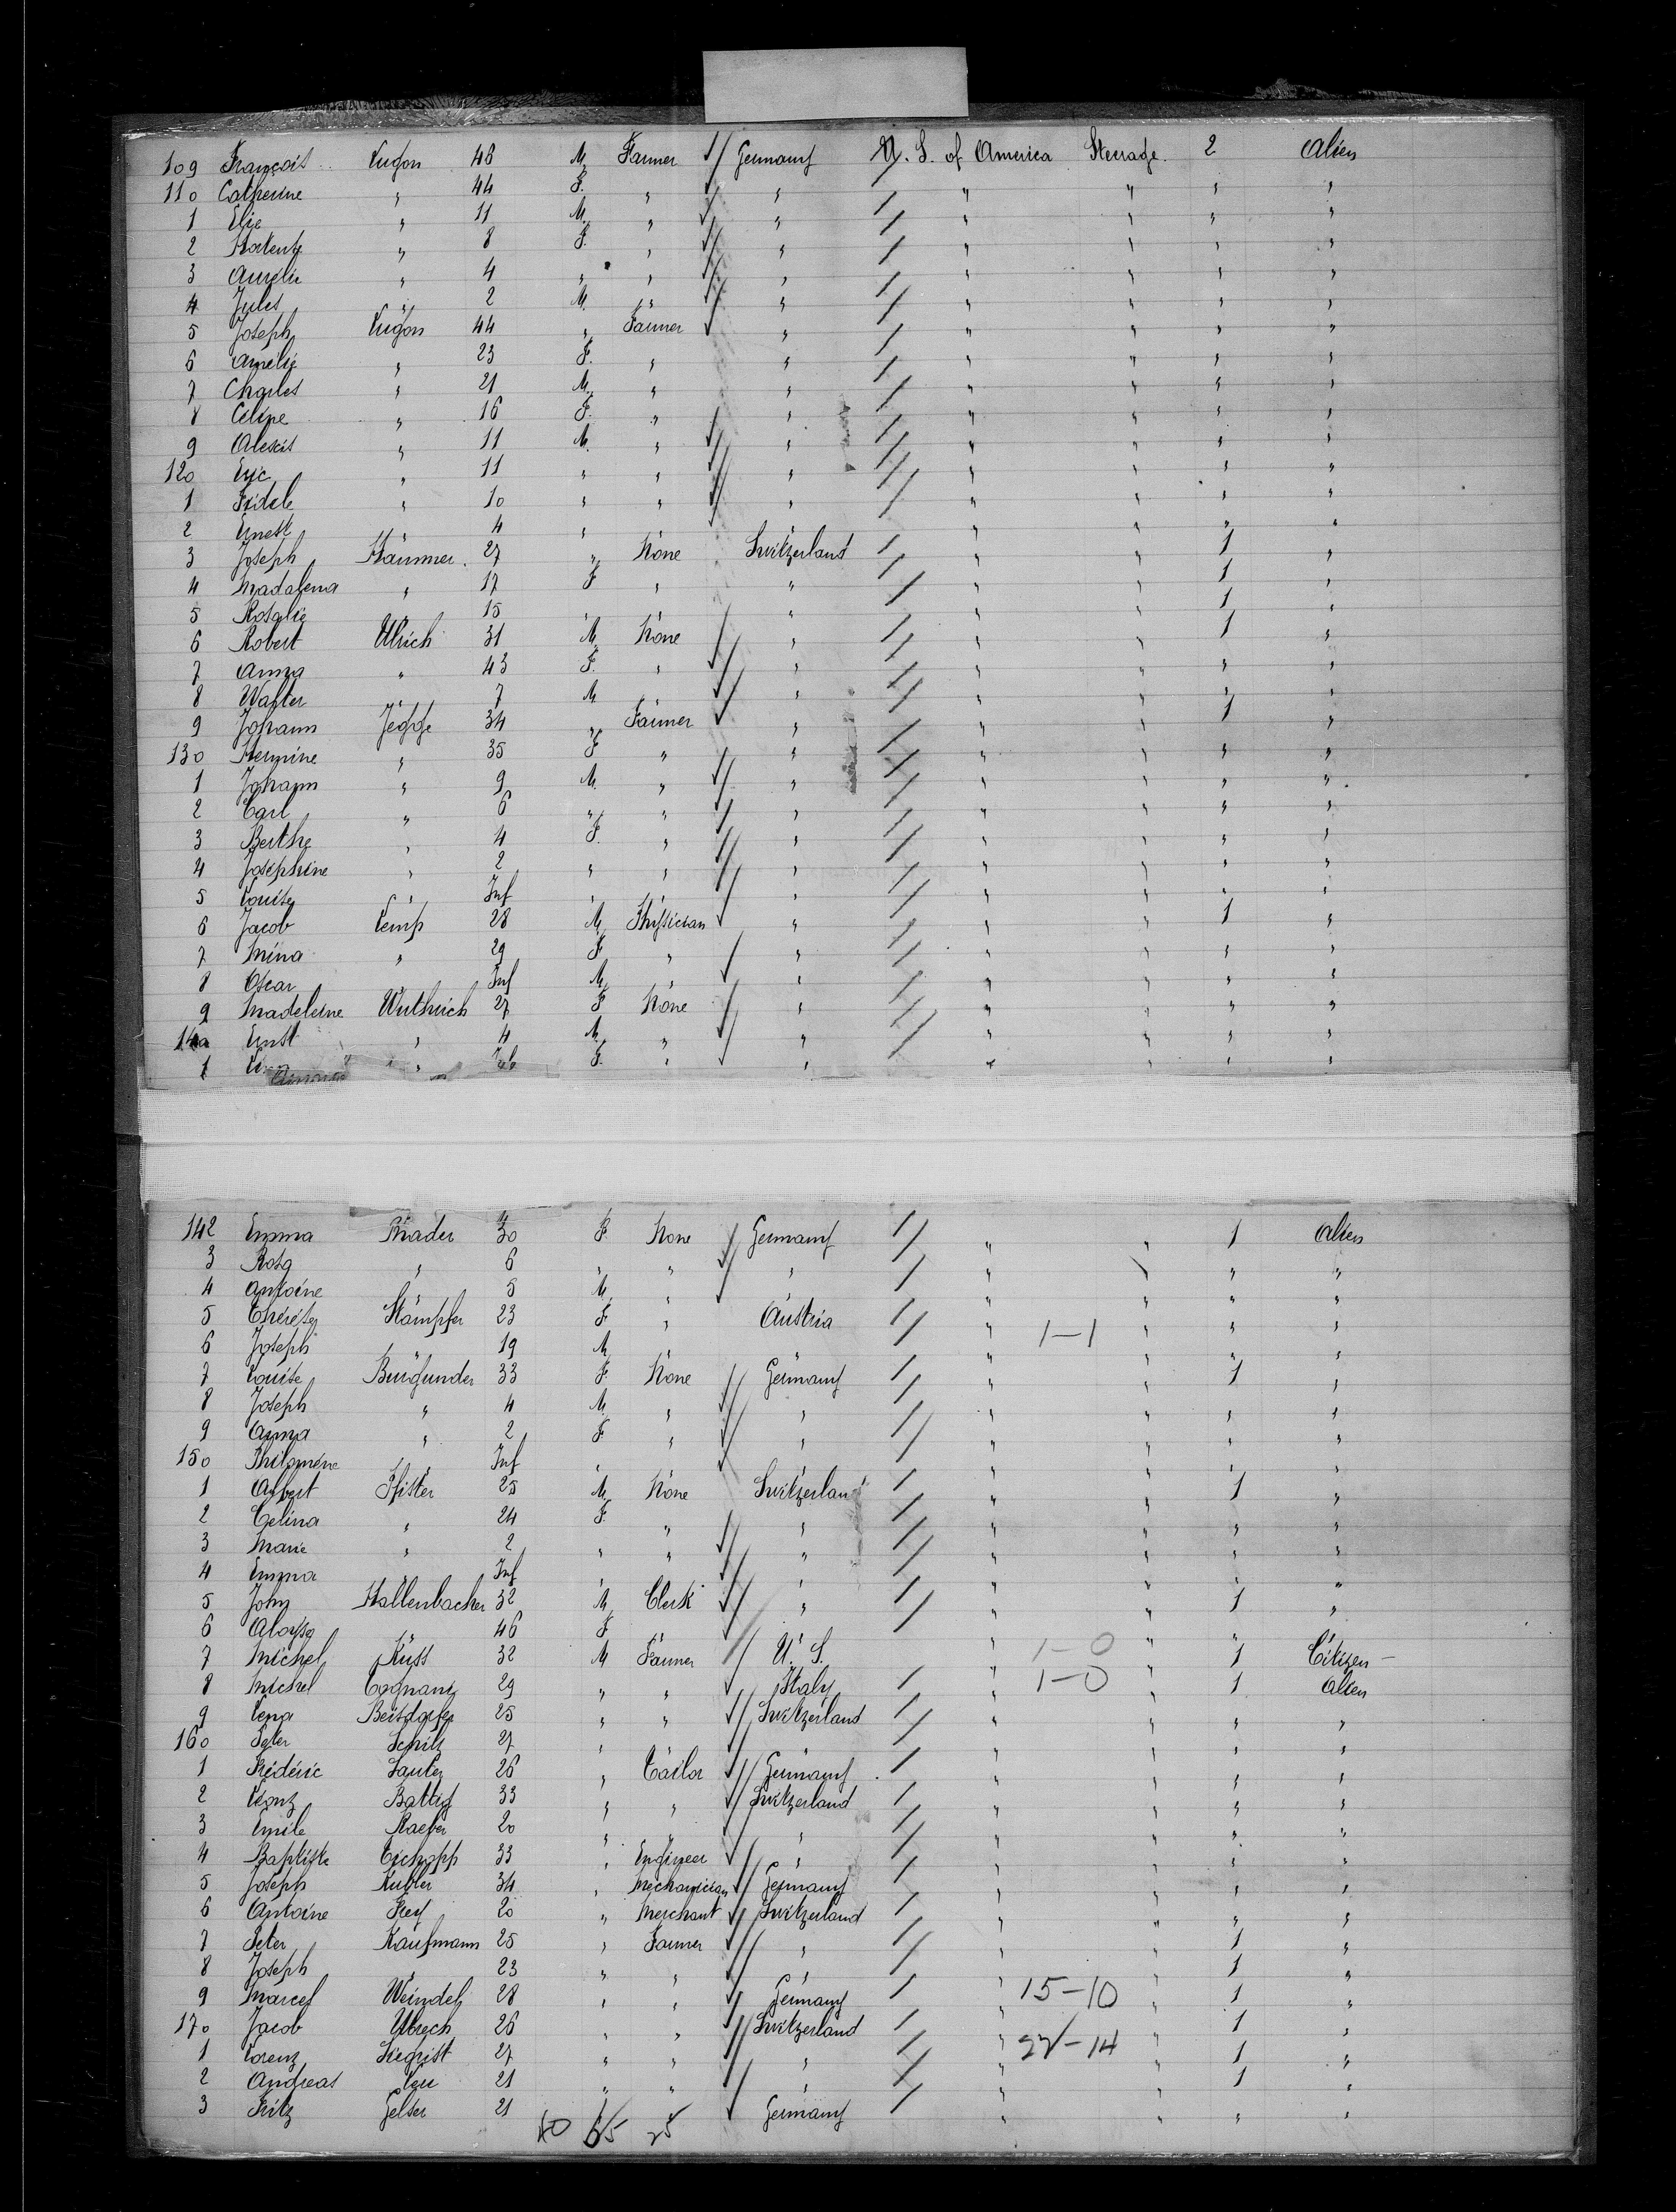 109 François Vugon 46 M. Farmer Germany U. S. of America Steerage. 2 Alien
110 Catherine " 44 F. " " " " " "
1 Elie " 11 M. " " " " " "
2 Hortense " 8 F. " " " " " "
3 Aurelie " 4 " " " " " " "
4 Jules " 2 M. " " " " " "
5 Joseph Vugon 44 " Farmer " " " " "
6 Amelie " 23 F. " " " " " "
7 Charles " 21 M. " " " " " "
8 Celine " 16 F. " " " " " "
9 Alexis " 11 M. " " " " " "
120 " 11 " " " " " " "
1 Fidele " 10 " " " " " " "
2 Ernest " 4 " " " " " " "
3 Joseph 27 " None Switzerland " " 1 "
4 Madalena " 17 F " " " " 1 "
5 Rosalie " 15 " " " " " 1 "
6 Robert Ulrich 31 M. None " " " 1 "
7 Anna " 43 F. " " " " " "
8 Walter " 7 M " " " " " "
9 Johann Jegge 34 " Farmer " " " 1 "
130 Hermine " 35 F " " " " " "
1 Johann " 9 M. " " " " " "
2 Carl " 6 " " " " " " "
3 Berthe " 4 F. " " " " " "
4 Josephine " 2 " " " " " " "
5 Louise " Inf " " " " " " "
6 Jacob Kemp 28 M. Phisician " " " 1 "
7 Mina " 29 F. " " " " " "
8 Oscar " Inf M. " " " " " "
9 Madeleine Wuthrich 27 F None " " " " "
140 Ernst " 4 M. " " " " " "
1 " F. " " " " " "
142 Emma Thader 30 F. None Germany " " 1 Alien
3 Rosa " 6 " " " " " " "
4 Antoine " 5 M. " " " " " "
5 Therese Stampfer 23 F " Austria " " " "
6 Joseph " 19 M. " " " 1-1 " " "
7 Louise Burgunder 33 F. None Germany " " 1 "
8 Joseph " 4 M. " " " " " "
9 Anna " 2 F " " " " " "
150 Philomène " Inf " " " " " " "
1 Albert Pfister 25 M. None Switzerland " " 1 "
2 Celina " 24 F. " " " " " "
3 Marie " 2 " " " " " " "
4 Emma " Inf " " " " " " "
5 John Hallenbacher 32 M. Clerk " " " 1 "
6 Aloysa " 46 F " " " " " "
7 Michel Kuss 32 M Farmer U. S. " 1-0 " 1 Citizen -
8 Michel 29 " " Italy " 1-0 " 1 Alien
9 Lena 25 " " Switzerland " " " "
160 Peter Schilz 27 " " " " " " "
1 Fréderic Sauter 26 " Tailor Germany " " " "
2 Battig 33 " " Switzerland " " " "
3 Emile Raeber 20 " " " " " " "
4 Baptiste 33 " Engineer " " " " "
5 Joseph Kubler 34 " Mechanician Germany " " " "
6 Antoine Frey 20 " Merchant Switzerland " " " "
7 Peter Kaufmann 25 " Farmer " " " 1 "
8 Joseph " 23 " " " " " 1 "
9 Marcel Weindel 28 " " Germany " 15-10 " 1 "
170 Jacob 26 " " Switzerland " " 1 "
1 Lorenz Siegrist 27 " " " " 22-14 " 1 "
2 Andreas Leu 21 " " " " " 1 "
3 Fritz Gelser 21 " " Germany " " " "
40 65 25